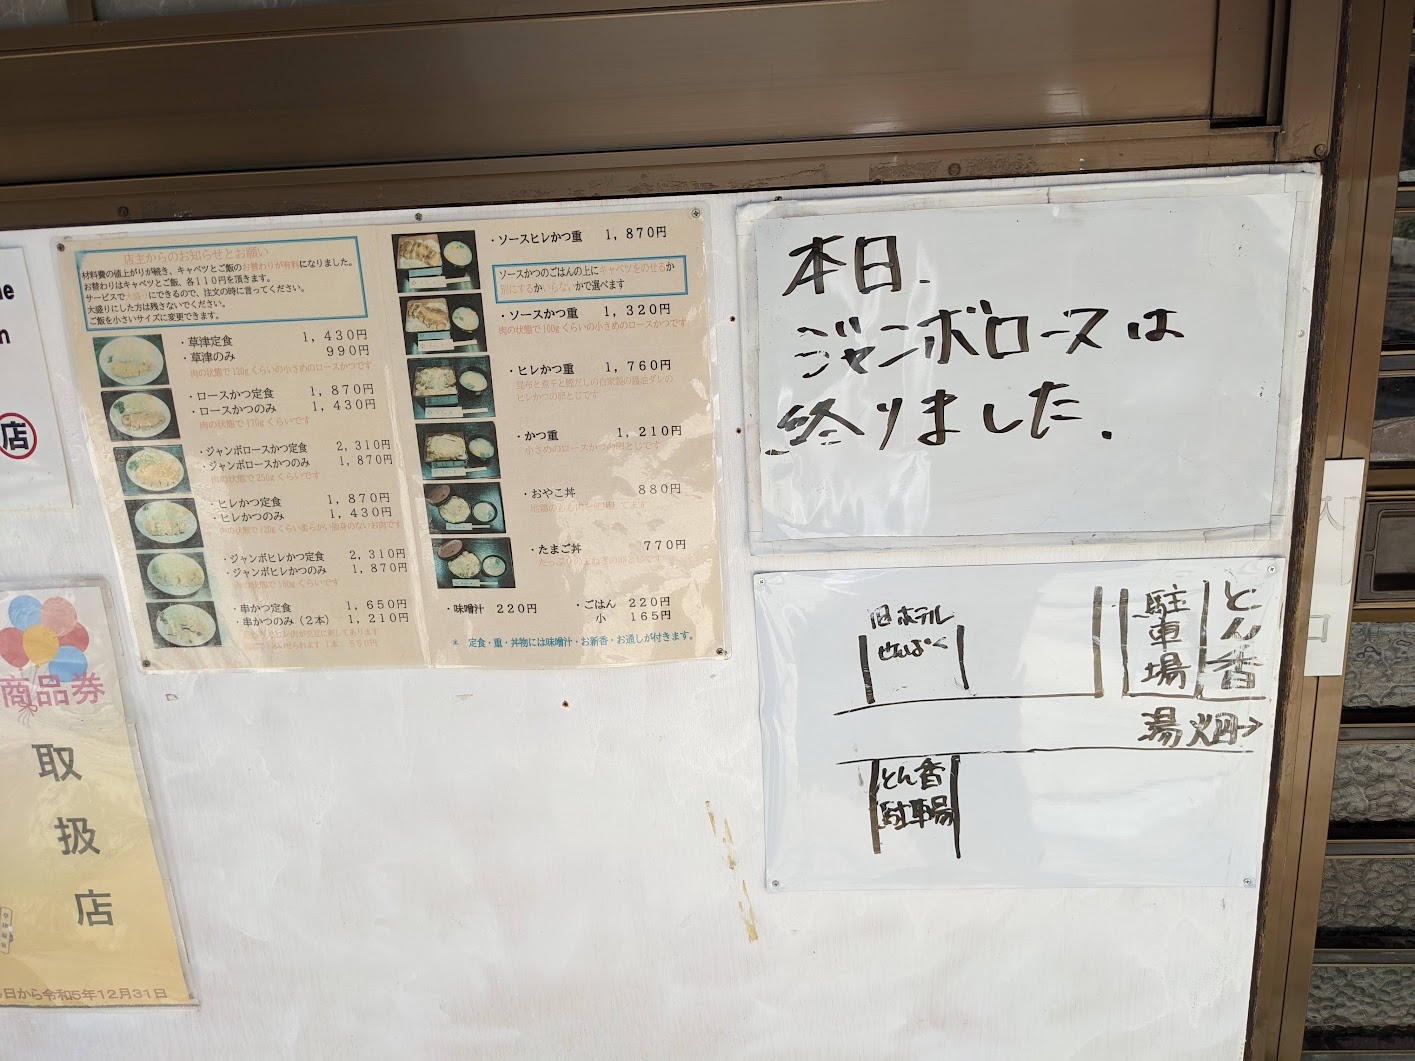 店
商品券
取
扱
店
日から令和5年12月31日
店主からのお知らせとお願い
材料費の値上がりが続き、キャベツとご飯のお替わりが有料になりました。
お替わりはキャベツとご飯、各110円を頂きます。
サービスで大盛りにできるので、注文の時に言ってください。
大盛りにした方は残さないでください。
ご飯を小さいサイズに変更できます。
・草津定食 1,430円
・草津のみ 990円
肉の状態で120gくらいの小さめのロースかつです
・ロースかつ定食 1,870円
・ロースかつのみ 1,430円
肉の状態で170gくらいです
・ジャンボロースかつ定食 2,310円
・ジャンボロースかつのみ 1,870円
肉の状態で250gくらいです
・ヒレかつ定食 1,870円
・ヒレかつのみ 1,430円
肉の状態で120gくらい柔らかい脂身のないお肉です
・ジャンボヒレかつ定食 2,310円
・ジャンボヒレかつのみ 1,870円
肉の状態で180gくらいです
・串かつ定食 1,650円
・串かつのみ(2本) 1,210円
1本 550円
・ソースヒレかつ重 1,870円
ソースかつのごはんの上にキャベツをのせるか
別にするかいらないかで選べます
・ソースかつ重 1,320円
肉の状態で100gくらいの小さめのロースかつです
・ヒレかつ重 1,760円
昆布と煮干と鰹だしの自家製の醤油ダレの
ヒレかつの卵とじです
・かつ重 1,210円
小さめのロースかつの卵とじです
・おやこ丼 880円
・たまご丼 770円
・味噌汁 220円
・ごはん 220円
小 165円
* 定食・重・丼物には味噌汁・お新香・お通しが付きます。
本日.
ジャンボロースは
終りました.
旧ホテル
せんばく
駐車場
とん香
湯畑→
とん香
駐車場
入
口